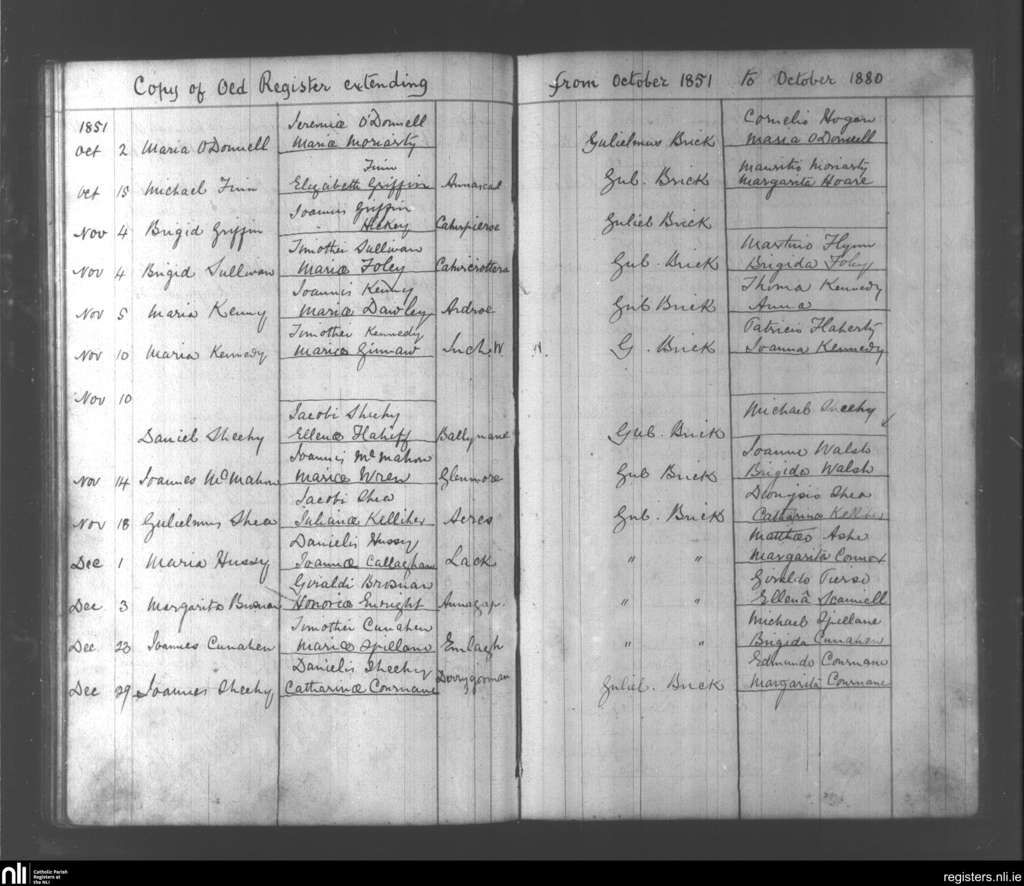 Copy of Old Register extending from October 1851 to October 1880
1851
Jeremiæ O'Donnell Cornelio Hogan
Oct 2 Maria O'Donnell Mariæ Moriarty Gulielmus Brick Maria O'Donnell
Finn Mauritio Moriarty
Oct 15 Michael Finn Elizabeth Griffin Annascal Gul. Brick Margarita Hoare
Joannis Griffin
Nov 4 Brigid Griffin Hickey Caherpierse Guliel Brick
Timothei Sullivan Martino Flynn
Nov 4 Brigid Sullivan Mariæ Foley Gul. Brick Brigida Foley
Joannis Kenny Thoma Kennedy
Nov 5 Maria Kenny Mariæ Dawley Ardroe Gul Brick Anna
Timothei Kennedy Patricio Flaherty
Nov 10 Maria Kennedy Mariæ Ginnaw Inch W W. G. Brick Joanna Kennedy
Nov 10
Jacobi Sheehy Michael Sheehy
Daniel Sheehy Ellenæ Flahiff Ballynane Gul. Brick
Joannis McMahon Joanne Walsh
Nov 14 Joannes McMahon Mariæ Wren Glenmore Gul Brick Brigida Walsh
Jacobi Shea Dionysio Shea
Nov 18 Gulielmus Shea Julianæ Kelliher Acres Gul. Brick Catharina Kelliher
Danielis Hussy Matthæo Ashe
Dec 1 Maria Hussy Joannæ Callaghan Lack " " Margarita Connor
Giraldi Brosnan Giraldo Pierse
Dec 3 Margarita Brosnan Honoriæ Enright Annagap. " " Ellenâ Scannell
Timothei Cunahen Michael Spillane
Dec. 23 Joannes Cunahen Mariæ Spillane Emlagh " " Brigida Cunahen
Danielis Sheehy Edmundo Cournane
Dec 29 Joannes Sheehy Catharinæ Cournane Derrygorman Guliel. Brick Margaritâ Cournane
nli Catholic Parish Registers at the NLI
registers.nli.ie